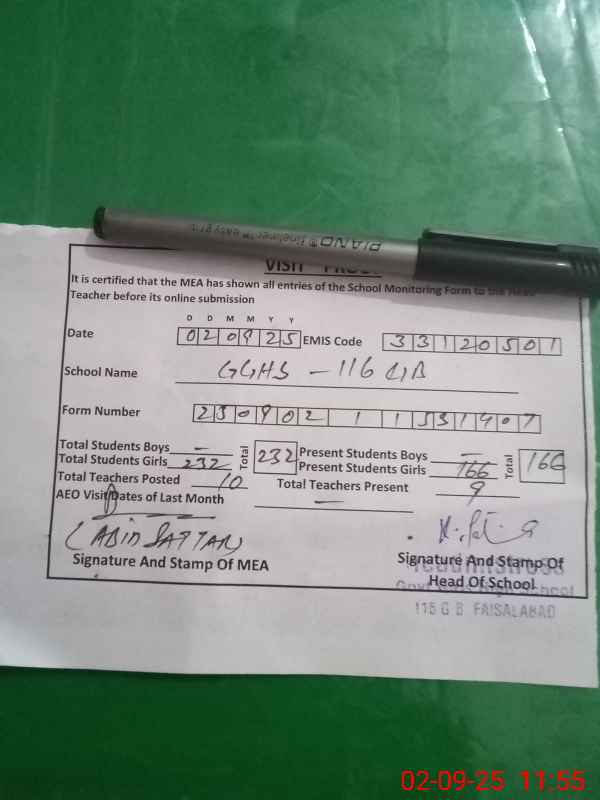 PIANO® Fineliner™ easy grip
VISIT PROOF
It is certified that the MEA has shown all entries of the School Monitoring Form to the Head
Teacher before its online submission
D D M M Y Y
Date 020925 EMIS Code 33120501
School Name GGHS - 116 GB
Form Number
Total Students Boys - Present Students Boys -
Total Students Girls 232 Total 232 Present Students Girls 166 Total 166
Total Teachers Posted 10 Total Teachers Present 9
AEO Visit Dates of Last Month -
(ABID SATTAR)
Signature And Stamp Of MEA
Signature And Stamp Of
Head Of School
Headmistress
Govt. Girls High School
FAISALABAD
02-09-25 11:55